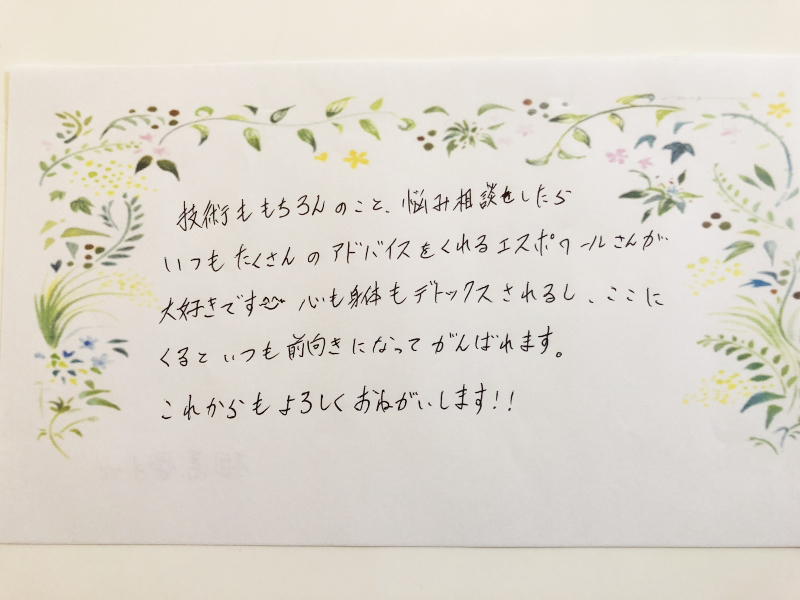 技術ももちろんのこと、悩み相談をしたら
いつもたくさんのアドバイスをくれるエスポワールさんが
大好きです 心も身体もデトックスされるし、ここに
くるといつも前向きになってがんばれます。
これからもよろしくおねがいします!!